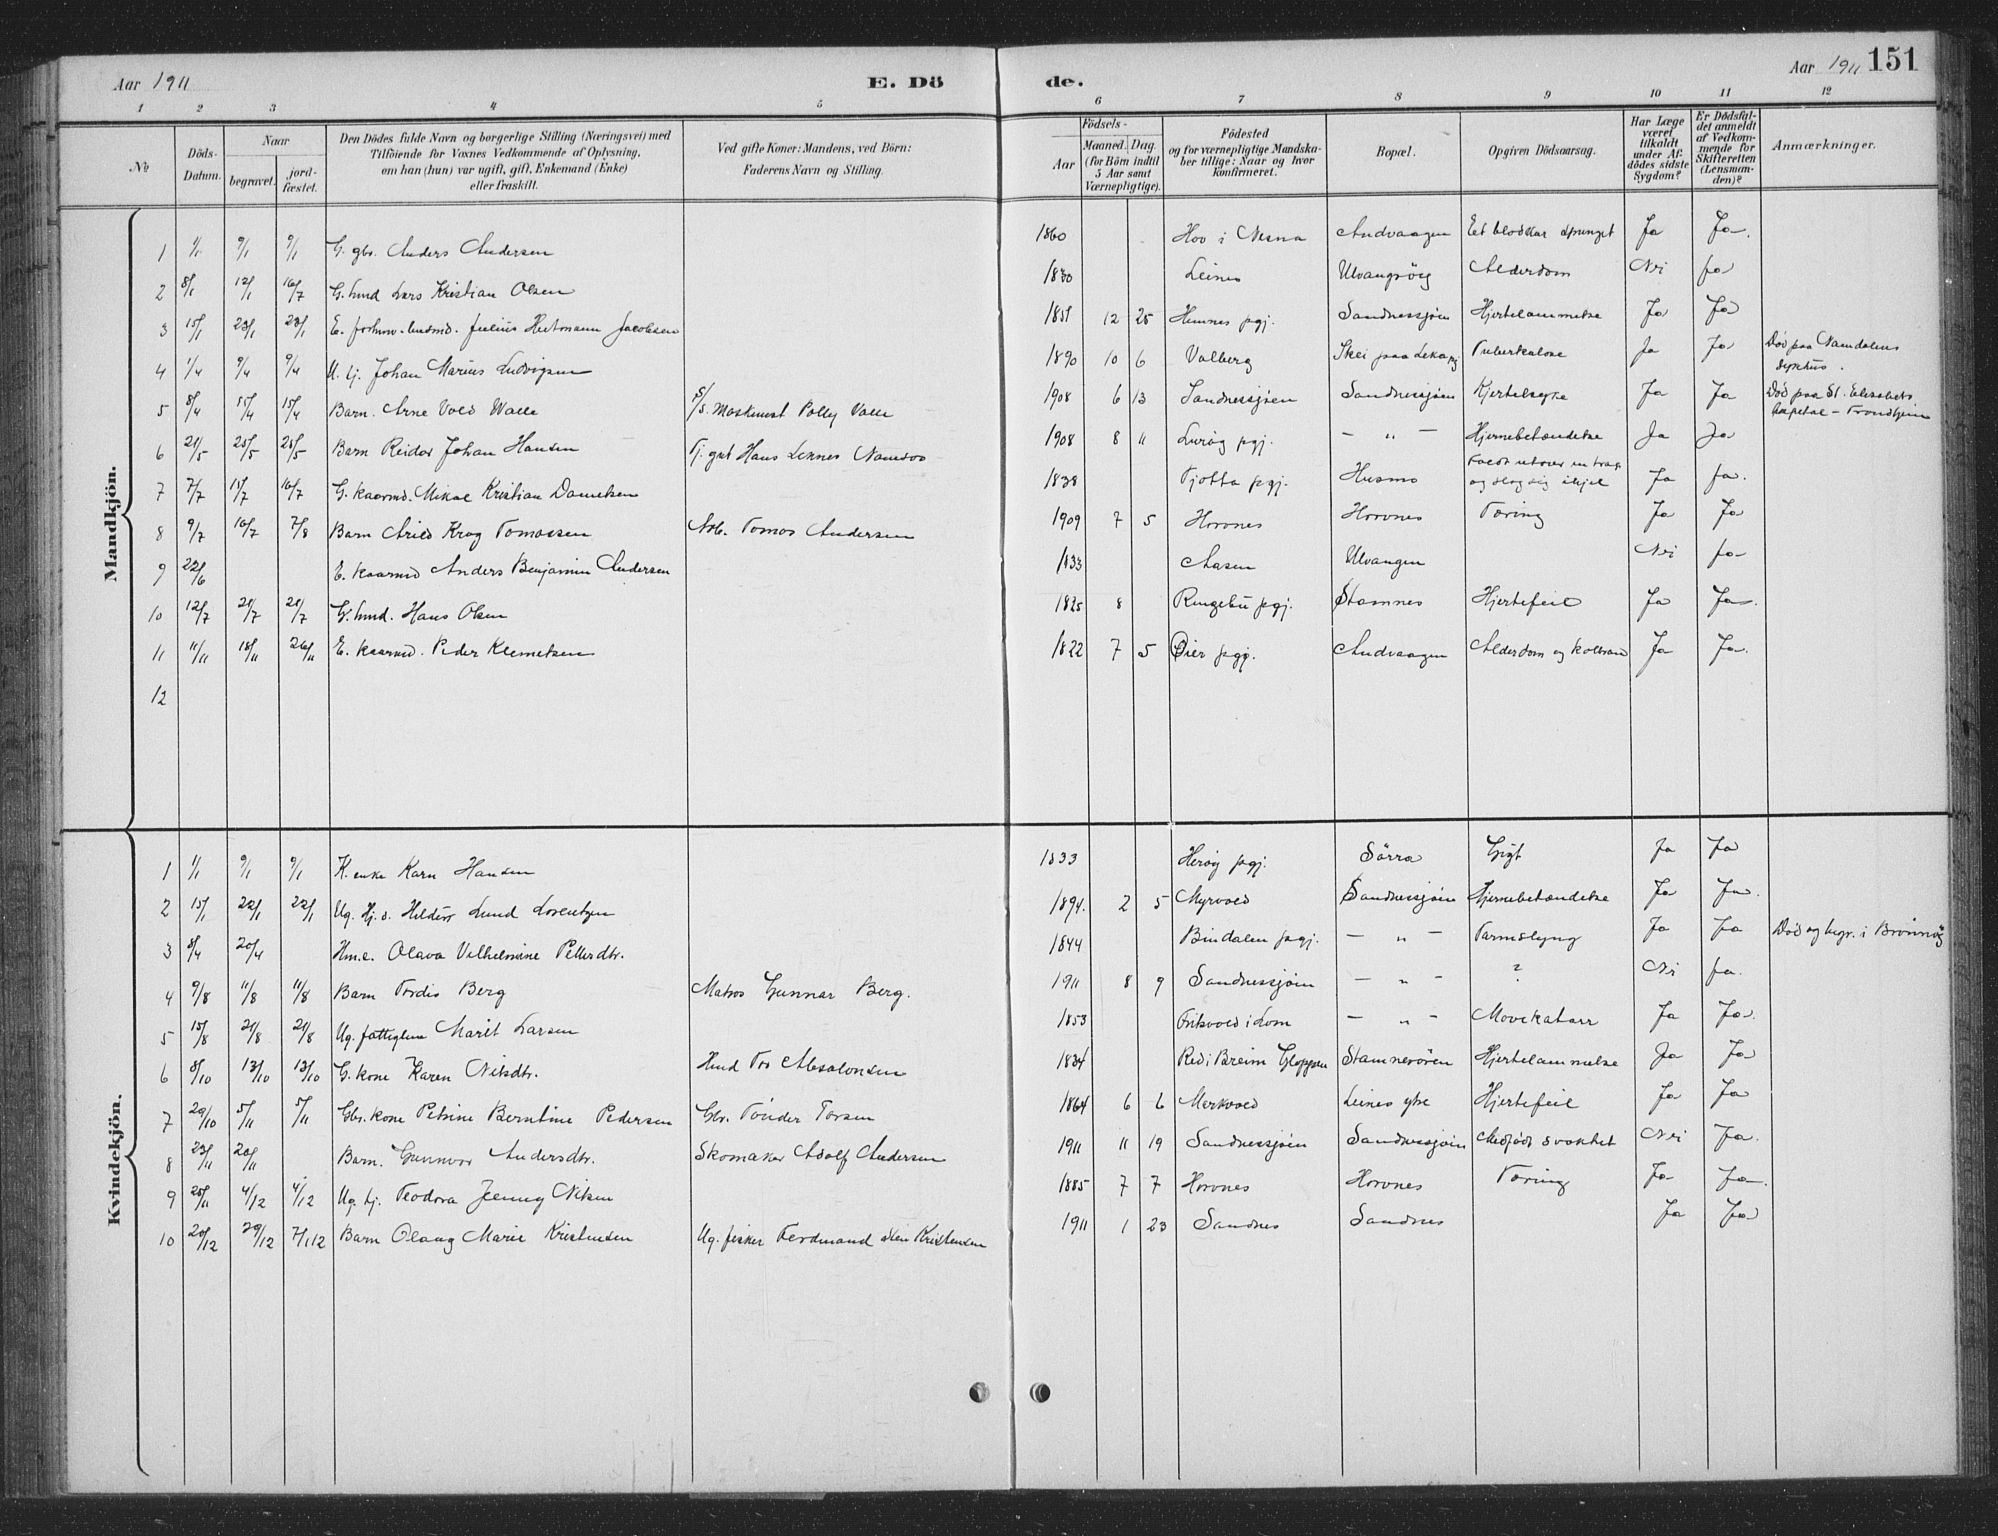 Aar 1911
E. Dö
de.
Aar 1911 151
1 2 3 4 5 6 7 8 9 10 11 12
No
Döds-
Datum.
Naar
begravet.
jord-
fæstet.
Den Dödes fulde Navn og borgerlige Stilling (Næringsvei) med
Tilföiende for Voxnes Vedkommende af Oplysning,
om han (hun) var ugift, gift, Enkemand (Enke)
eller fraskilt.
Ved gifte Koner: Mandens, ved Börn:
Faderens Navn og Stilling.
Födsels-
Aar
Maaned. Dag.
(for Börn indtil
5 Aar samt
Værnepligtige).
Födested
og for værnepligtige Mandska-
ber tillige: Naar og hvor
konfirmeret.
Bopæl.
Opgiven Dödsaarsag.
Har Læge
været
tilkaldt
under Af-
dödes sidste
Sygdom?
Er Dödsfal-
det anmeldt
af Vedkom-
mende for
Skifteretten
(Lensman-
den)?
Anmærkninger.
Mandkjön.
1 1/1 9/1 9/1 G. gbr. Anders Andersen 1860 Hov i Nesna Andvaagen Et blodkar sprunget Ja Ja.
2 8/1 12/1 16/7 G. hmd Lars Kristian Olsen 1830 Leines Ulvangsöy Alderdom Nei Ja
3 15/1 23/1 23/1 E. julius Hartmann Jacobsen 1851 12 25 Hemnes pgj. Sandnessjöen Hjertelammelse Ja Ja
4 1/4 9/4 9/4 U. tj. Johan Marius Ludvigsen 1890 10 6 Valberg Skei paa Leka Tuberkulose Ja Ja Död paa Namdalens
sykehus.
5 8/4 15/4 15/4 Barn. Arne Vold Walle S/S. Maskinist Polly Valle 1908 6 13 Sandnessjöen Sandnessjöen Kjertelsyke Ja Ja Död paa St. Elisabets
hospital - Trondhjem
6 21/5 25/5 25/5 Barn Reidar Johan Hansen Tj. gut Hans Lennes Namsos 1908 8 11 Luröy pgj. — „ — Hjernebetændelse Ja Ja
7 7/7 15/7 16/7 G. kaarmd. Mikal Kristian Danielsen 1838 Tjotta pgj. Husmo Faldt utover en trap
og slog sig ihjel Ja Ja.
8 9/7 16/7 7/8 Barn Arild Krog Tomassen Arb. Tomas Andersen 1909 7 5 Horvnes Horvnes Tæring Ja Ja
9 22/6 E. kaarmd Anders Benjamin Andersen 1833 Aasen Ulvangen Nei Ja
10 12/7 21/7 21/7 G. hmd. Hans Olsen 1825 8 Ringebu pgj. Stamnes Hjertefeil Ja Ja.
11 11/11 18/11 26/11 E. kaarmd. Peder Klemetsen 1822 7 5 Öier pgj. Andvaagen Alderdom og koldbrand Ja Ja.
12
Kvindekjön.
1 1/1 9/1 9/1 K. enke Karn Hansen 1833 Heröy pgj. Sörra Gigt Ja Ja
2 15/1 22/1 22/1 Ug. Hj. d. Hildur Lund Lorentzen 1894. 2 5 Myrvold Sandnessjöen Hjernebetændelse Ja Ja.
3 8/4 20/4 Hm.e. Olava Vilhelmine Pettersdtr. 1844 Bindalen pgj. — „ — Tarmslyng Ja Ja Död og begr. i Brönnöy
4 9/8 11/8 11/8 Barn Tordis Berg Matros Gunnar Berg. 1911 8 9 Sandnessjöen — „ — ? Nei Ja.
5 15/8 21/8 21/8 Ug. fattiglem Marit Larsen 1853 Friksvold i Lom — „ — Mavekatarr Ja Ja.
6 8/10 13/10 13/10 G. kone Karen Nilsdtr. Hmd Tos Absalonsen 1834 Red i Breim Gloppen Stamnesören Hjertelammelse Ja Ja
7 29/10 5/11 5/11 Gbr. kone Petrine Berntine Pedersen Gbr. Tönder Torsen 1864 6 6 Merkvold Leines ytre Hjertefeil Ja Ja
8 23/11 26/11 Barn. Gunnvor Andersdtr. Skomaker Adolf Andersen 1911 11 19 Sandnessjöen Sandnessjöen Medfödt svakhet Nei Ja.
9 25/11 4/12 4/12 Ug. tj. Teodora Jenny Nilsen 1885 7 7 Horvnes Horvnes Tæring Ja Ja.
10 20/12 29/12 7/1 12 Barn Olaug Marie Kristensen Ug. fisker Ferdinand Kristensen 1911 1 23 Sandnes Sandnes Ja Ja